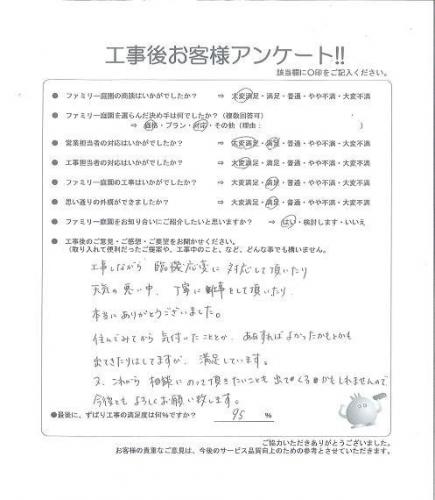 工事後お客様アンケート!!
該当欄に〇印をご記入ください。
● ファミリー庭園の商談はいかがでしたか？ ⇒ 大変満足・満足・普通・やや不満・大変不満
● ファミリー庭園を選らんだ決め手は何でしたか？（複数回答可）
⇒ 価格・プラン・対応・その他（理由： ）
● 営業担当者の対応はいかがでしたか？ ⇒ 大変満足・満足・普通・やや不満・大変不満
● 工事担当者の対応はいかがでしたか？ ⇒ 大変満足・満足・普通・やや不満・大変不満
● ファミリー庭園の工事はいかがでしたか？ ⇒ 大変満足・満足・普通・やや不満・大変不満
● 思い通りの外構ができましたか？ ⇒ 大変満足・満足・普通・やや不満・大変不満
● ファミリー庭園をお知り合いにご紹介したいと思いますか？ ⇒ はい・検討します・いいえ
● 工事後のご意見・ご感想・ご要望をお聞かせください。
（取り入れて便利だったご提案や、工事中のこと、など、どんな事でも構いません。
工事しながら 臨機応変に 対応して頂いたり
天気の悪い中、丁寧に 事をして頂いたり、
本当にありがとうございました。
住んでみてから 気付いたこととか、ああすればよかったかもとかも
出てきたりはしてますが、満足しています。
又、これから 相談にのって頂きたいことも 出てくるかもしれませんので
今後とも よろしくお願い致します。
●最後に、ずばり工事の満足度は何%ですか？ 95 %
ご協力いただきありがとうございました。
お客様の貴重なご意見は、今後のサービス品質向上のための参考とさせていただきます。